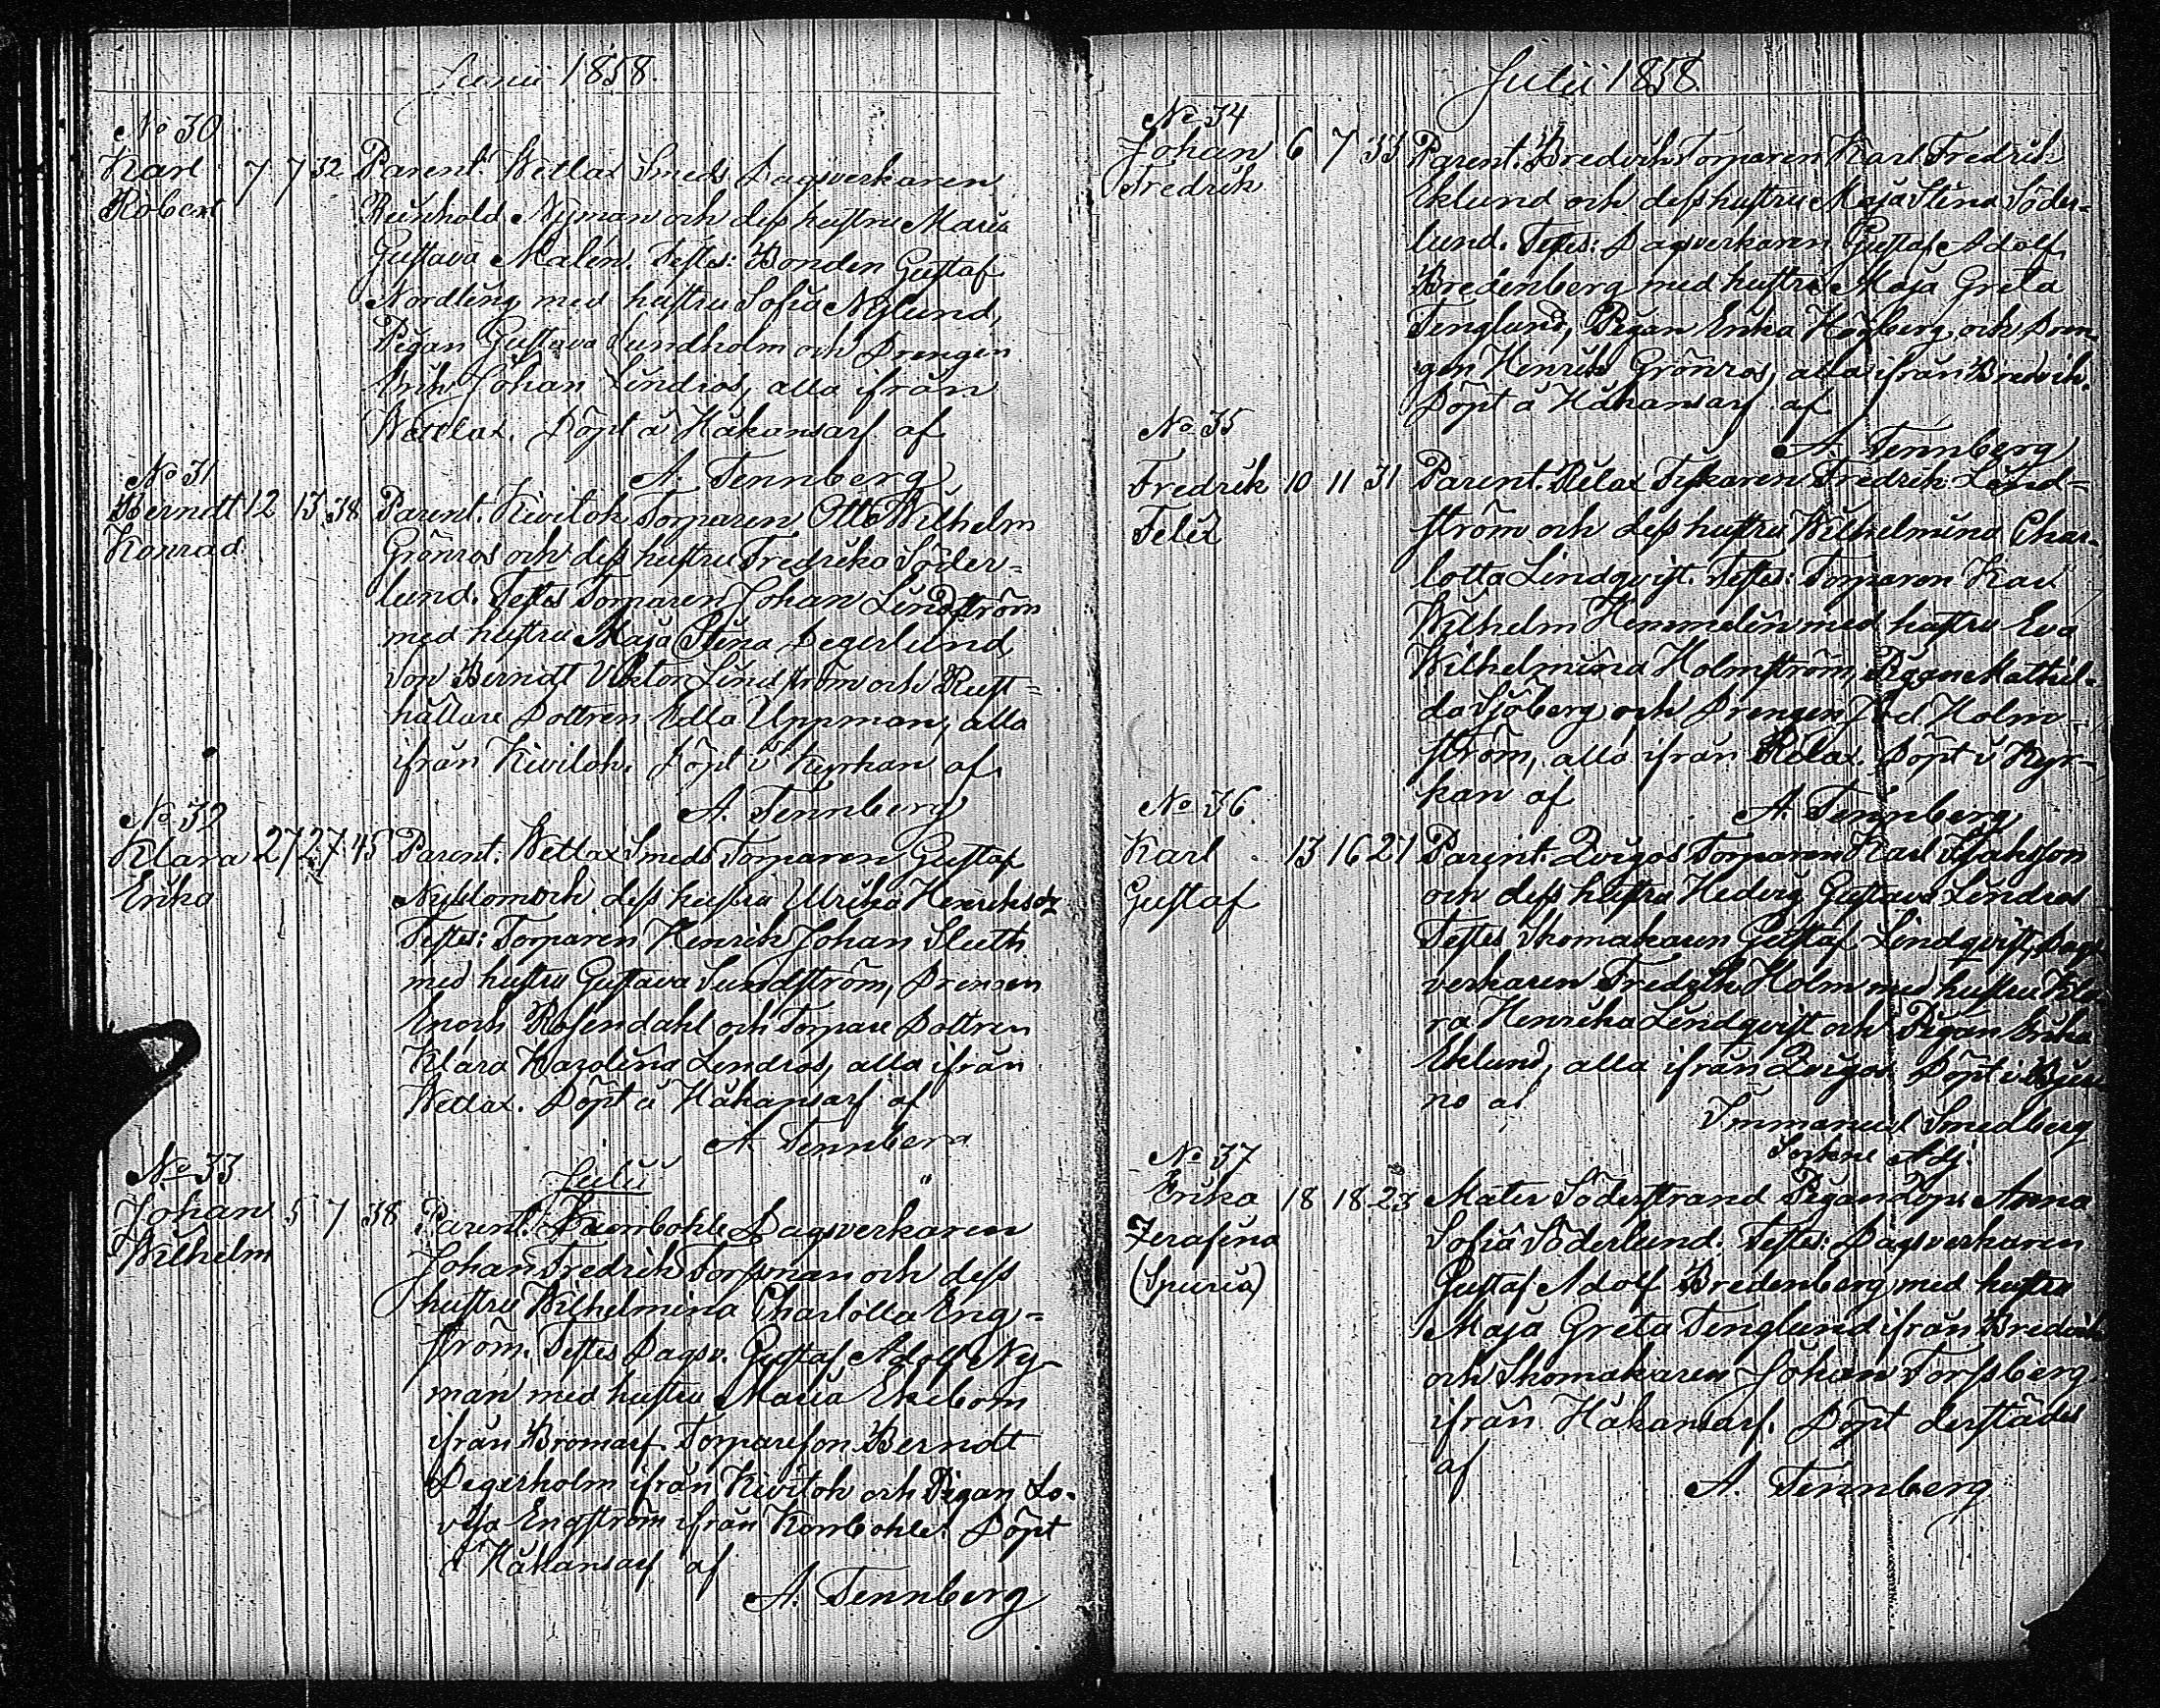 Junii 1858.
No 30
Karl 7 7 32 Parent. Wettlax Smeds Dagsverkaren
Robert Reinhold Nyman och dess hustru Maria
Gustava Malén. Testes: Bonden Gustaf
Nordling med hustru Sofia Nylund,
Pigan Gustava Sundholm och Drengen
Erik Johan Lindros, alla ifrån
Wettlax. Döpt å Håkansarf af
A. Tennberg
No 31
Berndt 12 13 38 Parent. Kivitok Torparen Otto Wilhelm
Konrad Grönros och dess hustru Fredrika Söder=
lund. Testes Torparen Johan Lindström
med hustru Maja Stina Degerlund
son Berndt Viktor Lindström och Rust=
hållare Dottren Edla Uppman, alla
ifrån Kivitok. Döpt i Kyrkan af
A. Tennberg
No 32
Klara 27 27 45 Parent. Wettlax Smeds Torparen Gustaf
Erika Nyblom och dess hustru Ulrika Henriksdr
Testes: Torparen Henrik Johan Sleeth
med hustru Gustava Sundström, Drengen
Enoch Rosendahl och Torpare Dottren
Klara Karolina Lindros, alla ifrån
Wettlax. Döpt å Håkansarf af
A. Tennberg
Julii
No 33
Johan 5 7 38 Parent. Korrbohle Dagsverkaren
Wilhelm Johan Fredrik Forssman och dess
hustru Wilhelmina Charlotta Eng=
ström. Testes Dagsv. Gustaf Adolf Ny-
man med hustru Maria Ekebom
ifrån Bromarf. Torpareson Berndt
Degerholm ifrån Kivitok och Pigan Lo-
visa Engström ifrån Korrbohle. Döpt
å Håkansarf af
A. Tennberg
Julii 1858.
No 34
Johan 6 7 33 Parent. Bredvik Torparen Karl Fredrik
Fredrik Eklund och dess hustru Maja Stina Söder=
lund. Testes: Dagsverkaren Gustaf Adolf
Bredenberg med hustru Maja Greta
Tenglund, Pigan Erika Högberg, och Dren-
gen Henrik Grönros, alla ifrån Bredvik.
Döpt å Håkansarf af
A. Tennberg
No 35
Fredrik 10 11 31 Parent. Rilax Fiskaren Fredrik Lind=
Felix ström och dess hustru Wilhelmina Char-
lotta Lindqvist. Testes: Torparen Karl
Wilhelm Himmelin med hustru Eva
Wilhelmina Holmström, Pigan Mathil-
da Sjöberg och Drengen Joel Holm=
ström, alla ifrån Rilax. Döpt i Kyr-
kan af
A. Tennberg
No 36
Karl 13 16 27 Parent. Qvigos Torparen Karl Isaksson
Gustaf och dess hustru Hedvig Gustava Lindros
Testes Skomakaren Gustaf Lindqvist, Dags
verkaren Fredrik Holm med hustru Kla
ra Henrika Lindqvist och Pigan Erika
Eklund, alla ifrån Qvigos. Döpt i
no af
Immanuel Smedberg
Adj.
No 37
Erika 18 18 23 Mater Söderstrand Pigan Anna
Serafina Sofia Söderlund. Testes: Dagsverkaren
(Spuria) Gustaf Adolf Bredenberg med hustru
Maja Greta Tenglund ifrån Bredvik
och Skomakaren Johan Forssberg
ifrån Håkansarf. Döpt derstädes
af
A. Tennberg